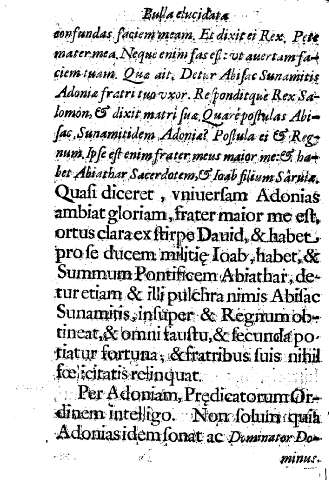 Bulla elucidata
confundas faciem meam. Et dixit ei Rex. Pete
mater mea. Neque enim fas est: vt auertam fa-
ciem tuam. Quæ ait. Detur Abisac Sunamitis
Adoniæ fratri tuo vxor. Responditque Rex Sa-
lomon, & dixit matri suæ. Quare postulas Abi-
sac, Sunamitidem Adoniæ? Postula ei & Reg-
num. Ipse est enim frater meus maior me: & ha-
bet Abiathar Sacerdotem, & Ioab filium Saruiæ.
Quasi diceret, vniuersam Adonias
ambiat gloriam, frater maior me est,
ortus clara ex stirpe Dauid, & habet
pro se ducem militię Ioab, habet, &
Summum Pontificem Abiathar, de-
tur etiam & illi pulchra nimis Abisac
Sunamitis, insuper & Regnum ob-
tineat, & omni faustu, & fecunda po-
tiatur fortuna; & fratribus suis nihil
fœlicitatis relinquat.
Per Adoniam, Prędicatorum Or-
dinem intelligo. Non solum quia
Adonias idem sonat ac Dominator Do-
minus.